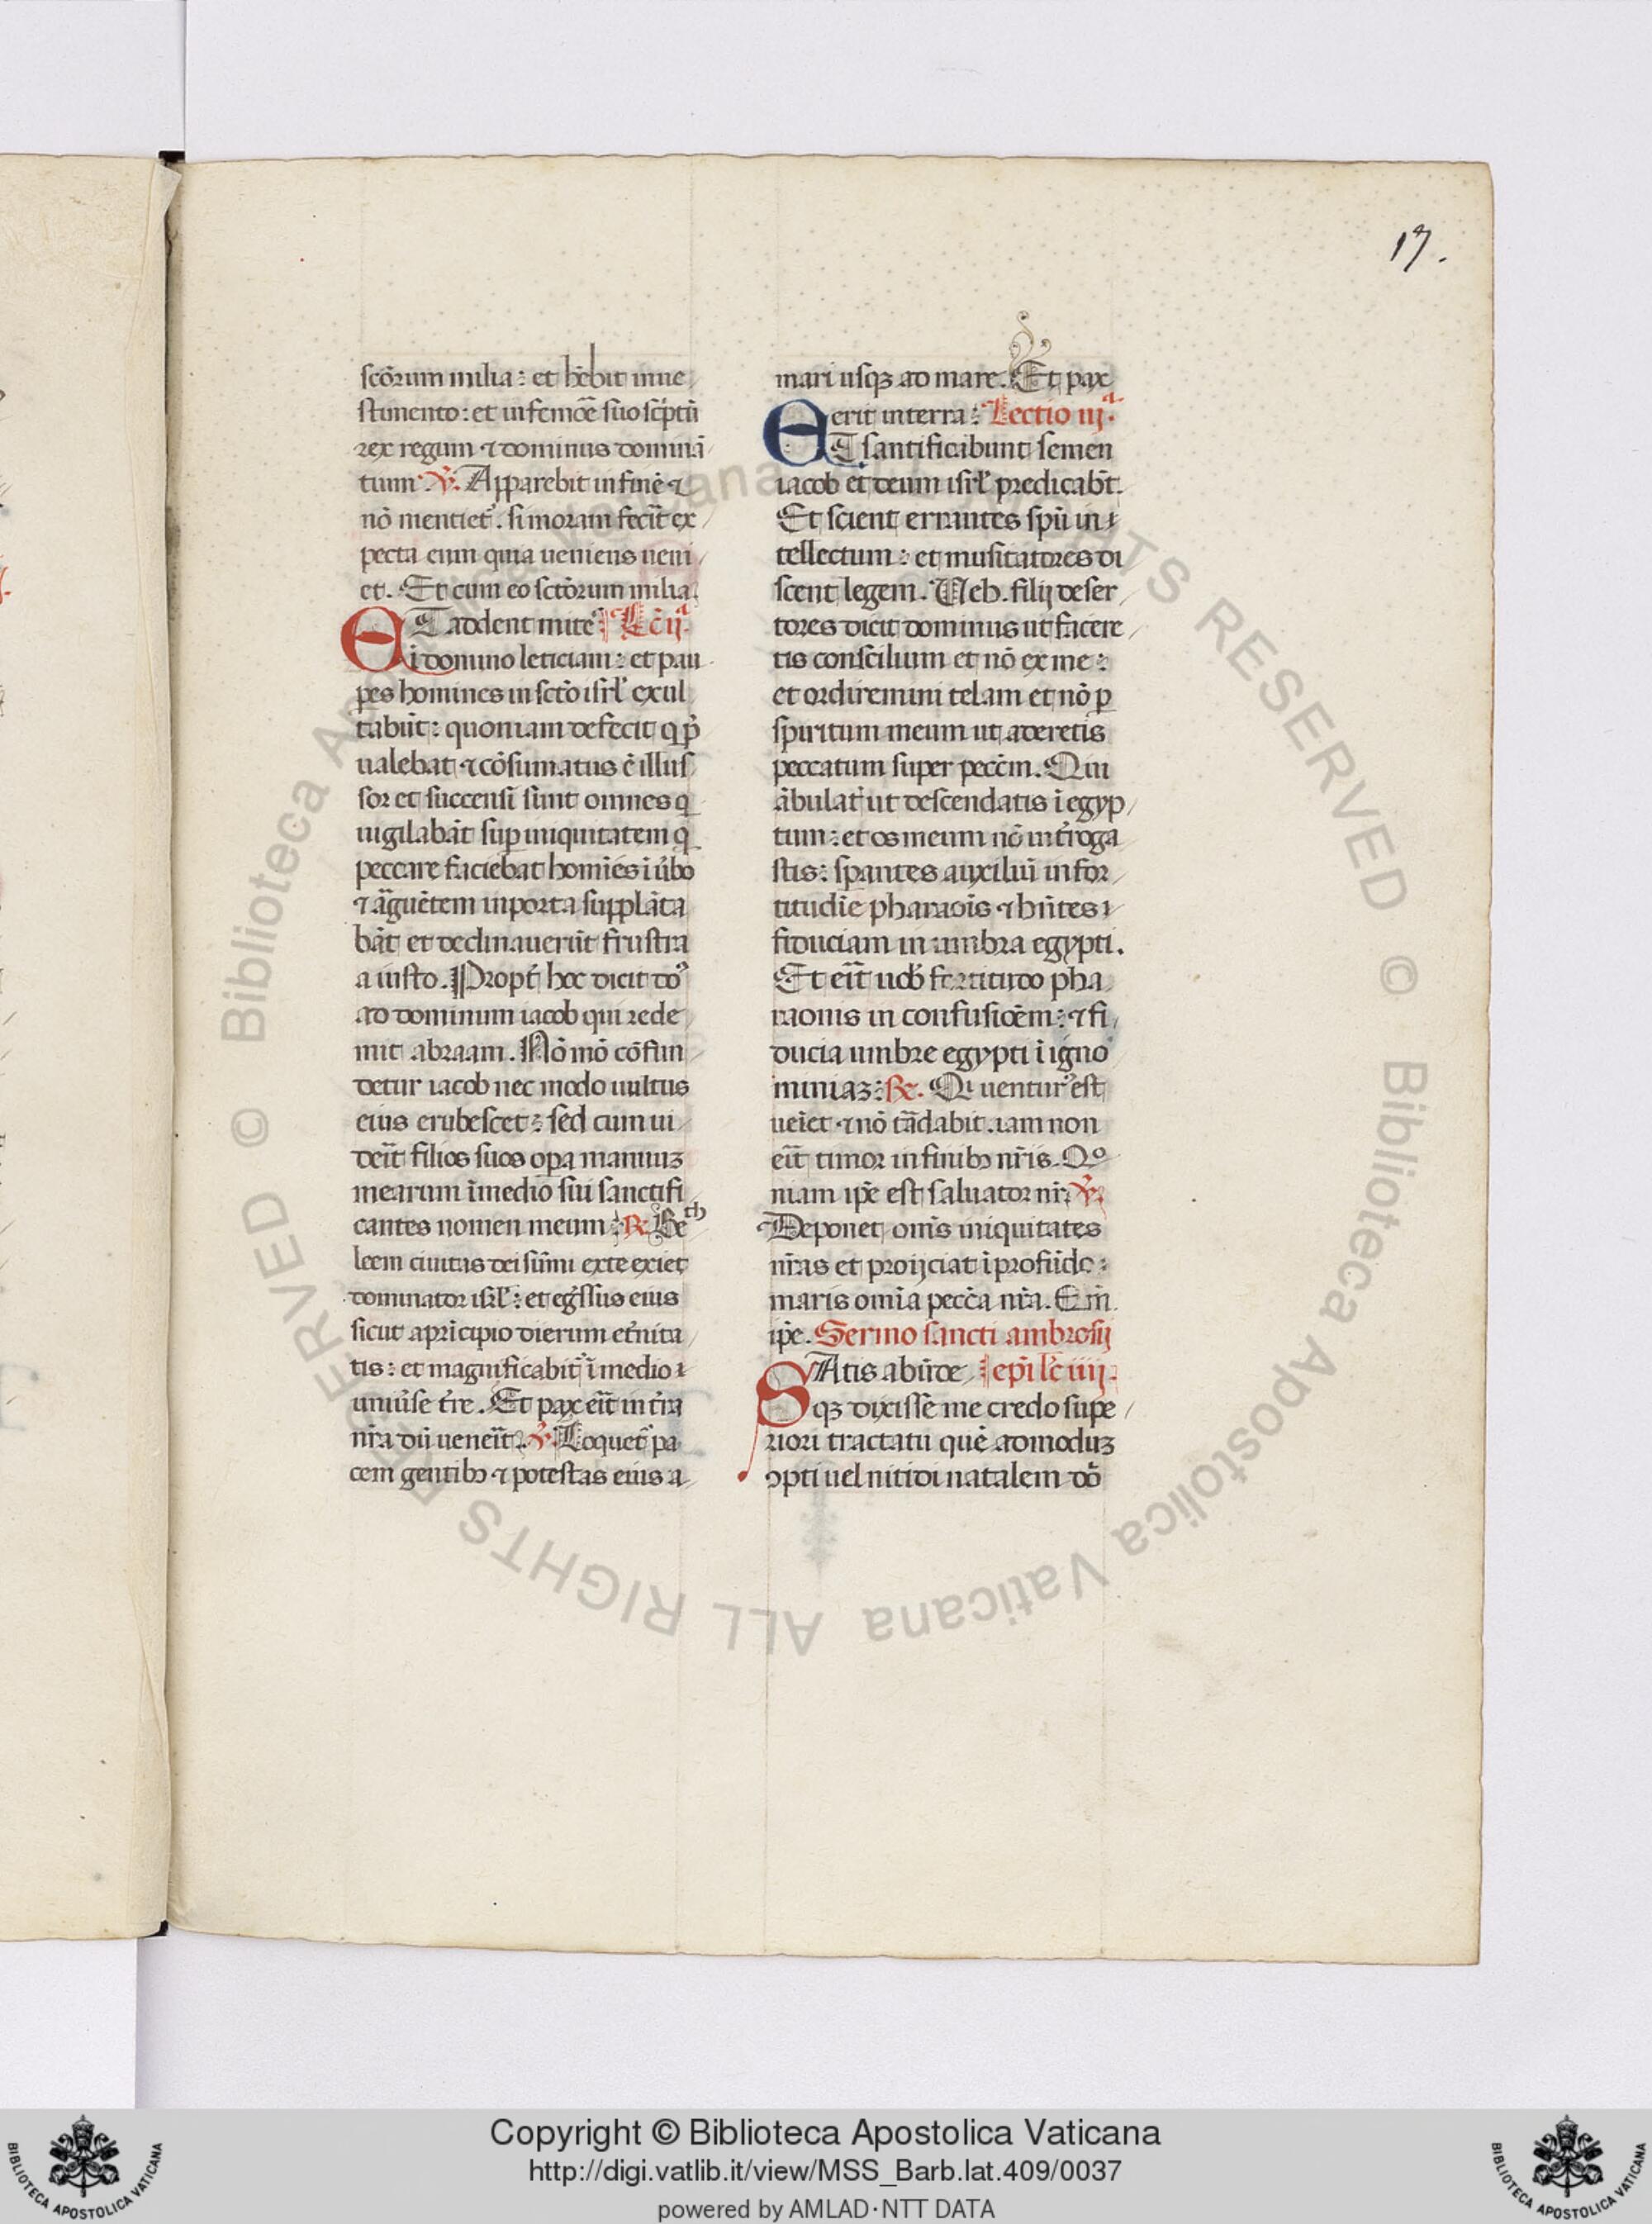 17.
sctõrum milia: et hẽbit in ue
stimento: et in femõe suo scͥptũ
rex regum ⁊ dominus dominã
tium. ℣. Apparebit in finẽ ⁊
nõ mentiet᷑. si moram fecͥit ex
pecta eum quia ueniens ueni
et. Et cum eo sctõrum milia.
ET addent mite Lc̃ ijª.
s ĩ domino leticiam: et pau
ꝑes homines in sctõ isrl̃ exul
tabũt: quoniam defecit q p̃
ualebat ⁊ cõsumatus ẽ illus
sor et succensi sunt omnes q
uigilabãt suꝑ iniquitatem q
peccare faciebãt homĩes ĩ ũbo
⁊ ãguẽtem in porta supplãta
bãt et declinauerũt frustra
a iusto. Propt̃ hoc dicit dõs
ad dominum iacob qui rede
mit abraam. Nõ mõ cõfun
detur iacob nec modo uultus
eius erubescet: sed cum ui
deĩt filios suos oꝑa manuuȝ
mearum ĩ medio sui sanctifi
cantes nomen meum: ℟. Beth
leem ciuitas dei sũmi ex te exiet
dominator isrl̃: et eg̃ssus eius
sicut a prĩcipio dierum et̃nita
tis: et magnificabit᷑ ĩ medio
uniũse t̃re. Et pax eĩt in t̃ra
nr̃a dũ ueneĩt. ℣. Loquet᷑ pa
cem gentibꝰ ⁊ potestas eius a
mari usqȝ ad mare. Et pax
erit in terra: Lectio iijª.
ET santificabunt semen
iacob et deum isrl̃ predicabt̃.
Et scient errantes spũ in
tellectum: et musitatores di
scent legem. Ueh. filij deser
tores dicit dominus ut facere
tis conscilium et nõ ex me:
et ordiremini telam et nõ ꝑ
spiritum meum ut aderetis
peccatum super pecc̃m. Qui
ãbulat᷑ ut descendatis ĩ egyp
tum: et os meum nõ int̃roga
stis: sꝑantes auxiluĩ in for
titudĩe pharaoĩs ⁊ hñtes
fiduciam in umbra egypti.
Et eĩt uob̃ fortitudo pha
raonis in confusiõem: ⁊ fi
ducia umbre egypti ĩ igno
miniaȝ: ℟. Qi uenturꝰ est
ueĩet ⁊ nõ tãdabit. iam non
eĩt timor in finibꝰ nr̃is. Qo
niam ip̃e est saluator nr̃. ℣.
Deponet om̃s iniquitates
nr̃as et proijciat ĩ profũdo:
maris omĩa pecc̃a nr̃a. Qm̃
ip̃e. Sermo sancti ambrosij
SAtis abũde epĩ lc̃ iiij.
qȝ dixisse me credo supe
riori tractatu quẽ admoduȝ
ꝯpti uel nitidi natalem dõ
Copyright © Biblioteca Apostolica Vaticana
http://digi.vatlib.it/view/MSS_Barb.lat.409/0037
powered by AMLAD·NTT DATA
BIBLIOTECA APOSTOLICA VATICANA
BIBLIOTECA APOSTOLICA VATICANA
© Biblioteca Apostolica Vaticana ALL RIGHTS RESERVED
© Biblioteca Apostolica Vaticana ALL RIGHTS RESERVED